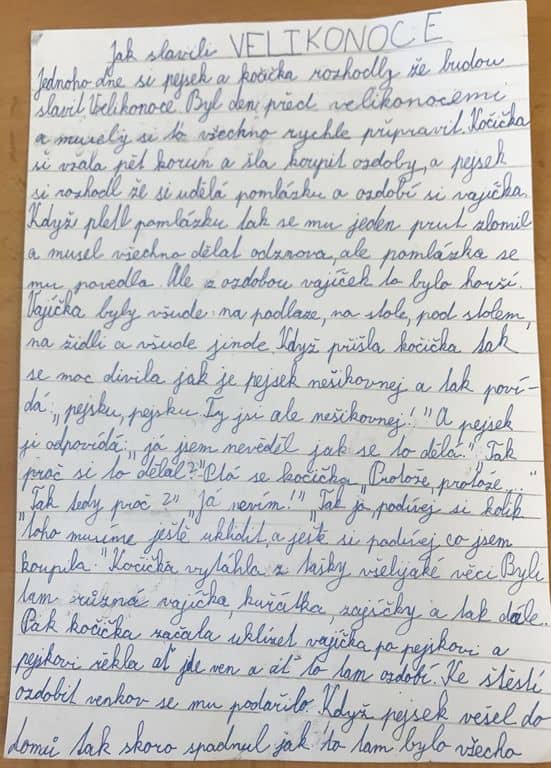 Jak slavili VELIKONOCE
Jednoho dne si pejsek a kočička rozhodly že budou
slavit Velikonoce. Byl den před velikonocemi
a musely si to všechno rychle připravit. Kočička
si vzala pět korun a šla koupit ozdoby, a pejsek
si rozhodl že si udělá pomlázku a ozdobí si vajíčka.
Když pletl pomlázku tak se mu jeden prut zlomil
a musel všechno dělat odznova, ale pomlázka se
mu povedla. Ale z ozdobou vajíček to bylo horší.
Vajíčka byly všude: na podlaze, na stole, pod stolem,
na židli a všude jinde. Když přišla kočička tak
se moc divila jak je pejsek nešikovnej a tak poví-
dá: „pejsku, pejsku Ty jsi ale nešikovnej!" A pejsek
ji odpovídá: „já jsem nevěděl jak se to dělá." „Tak
proč si to dělal?" Ptá se kočička „Protože, protože..."
"Tak tedy proč?" „Já nevím!" „Tak jo, podívej si kolik
toho musíme ještě uklidit, a ještě si podívej co jsem
koupila." Kočička vytáhla z tašky všelijaké věci. Byli
tam různá vajíčka, kuřátka, zajíčky a tak dále.
Pak kočička začala uklízet vajíčka po pejskovi a
pejskovi řekla ať jde ven a ať to tam ozdobí. Ke štěstí
ozdobit venkov se mu podařilo. Když pejsek vešel do
domů tak skoro spadnul jak to tam bylo všecho